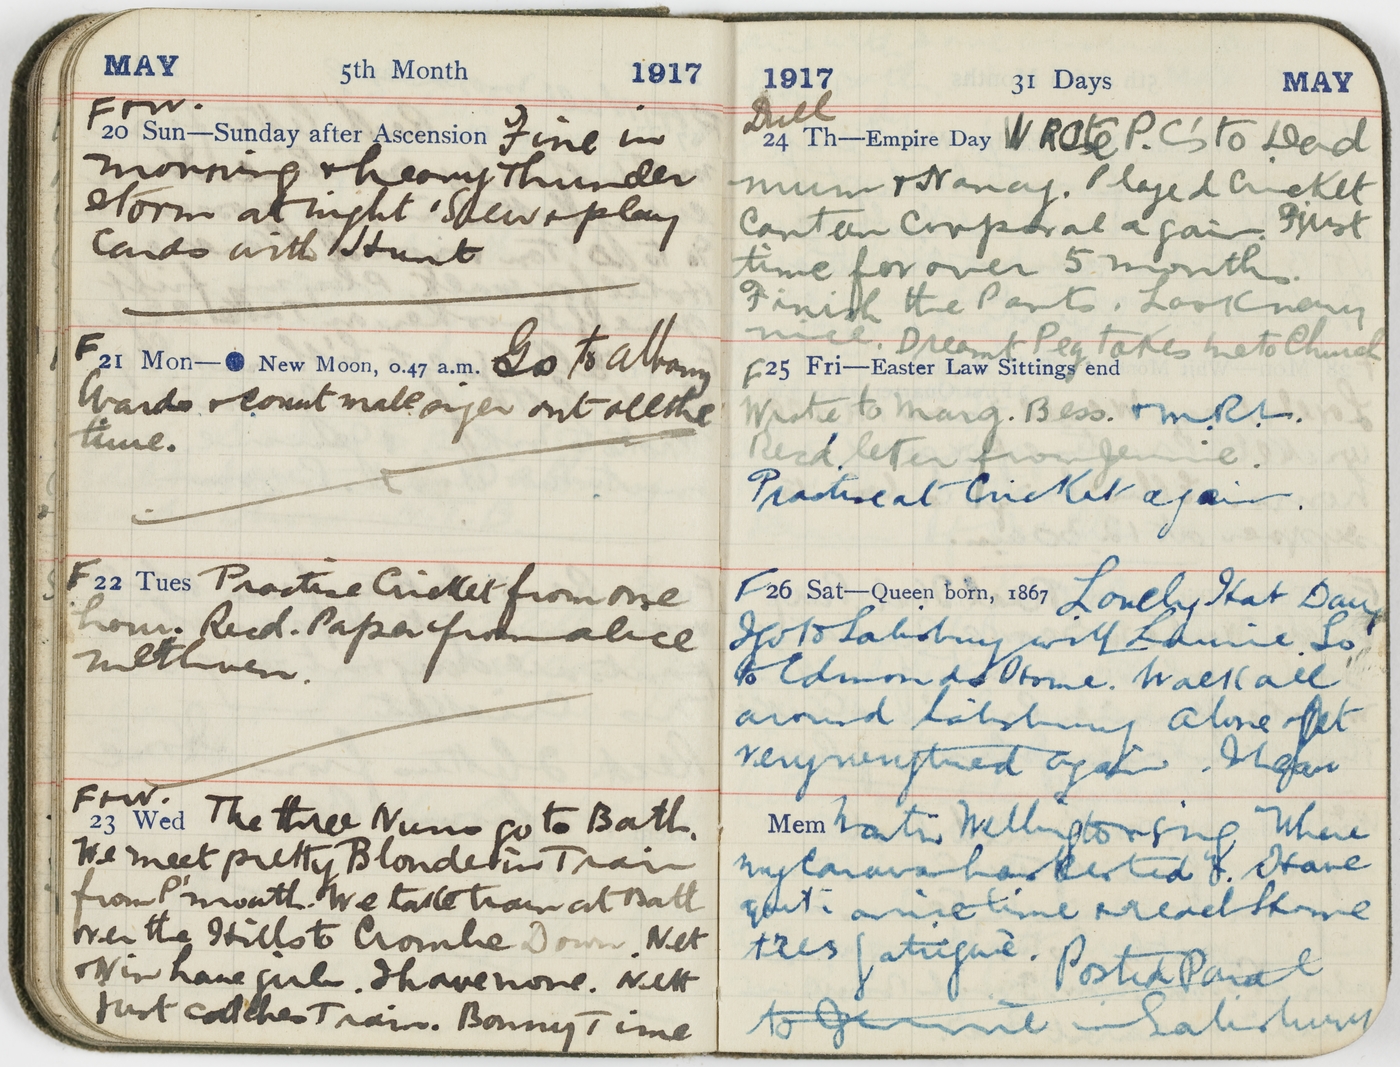 MAY 5th Month 1917
F & W.
20 Sun—Sunday after Ascension Fine in
morning & heavy Thunder
storm at night. Sew & play
Cards with Hunt
F
21 Mon— New Moon, 0.47 a.m. Go to Albany
Wards & count out all the
time.
F
22 Tues Practise Cricket from one
hour. Recd. Paper from Alice
Methven.
F & W.
23 Wed The three Nuns go to Bath.
We meet pretty Blonde in Train
from P'mouth. We take train at Bath
over the Hills to Crombe Down. Net
& Nin have girls. I have none. Nett
Just catches Train. Bonny Time
1917 31 Days MAY
Dull
24 Th—Empire Day Wrote P.C's to Dad
mum & Nancy. Played Cricket
Canteen Corporal again. First
time for over 5 months.
Finish the Pants. Look very
nice. Dreamt Peg takes me to Church
F
25 Fri—Easter Law Sittings end
Wrote to Marg. Bess. & M.R.L.
Recd. letter from Jennie.
Practise at Cricket again.
F
26 Sat—Queen born, 1867 Lovely Hot Day
I go to Salisbury with Laurie. Go
to Edmonds Home. Walk all
around Salisbury Alone & get
very very tired again. I hear
Mem Martin Wellington sing "Where
my Caravan has Rested". Have
quite a nice time & reach Home
très fatigué. Posted Parcel
to Jennie in Salisbury